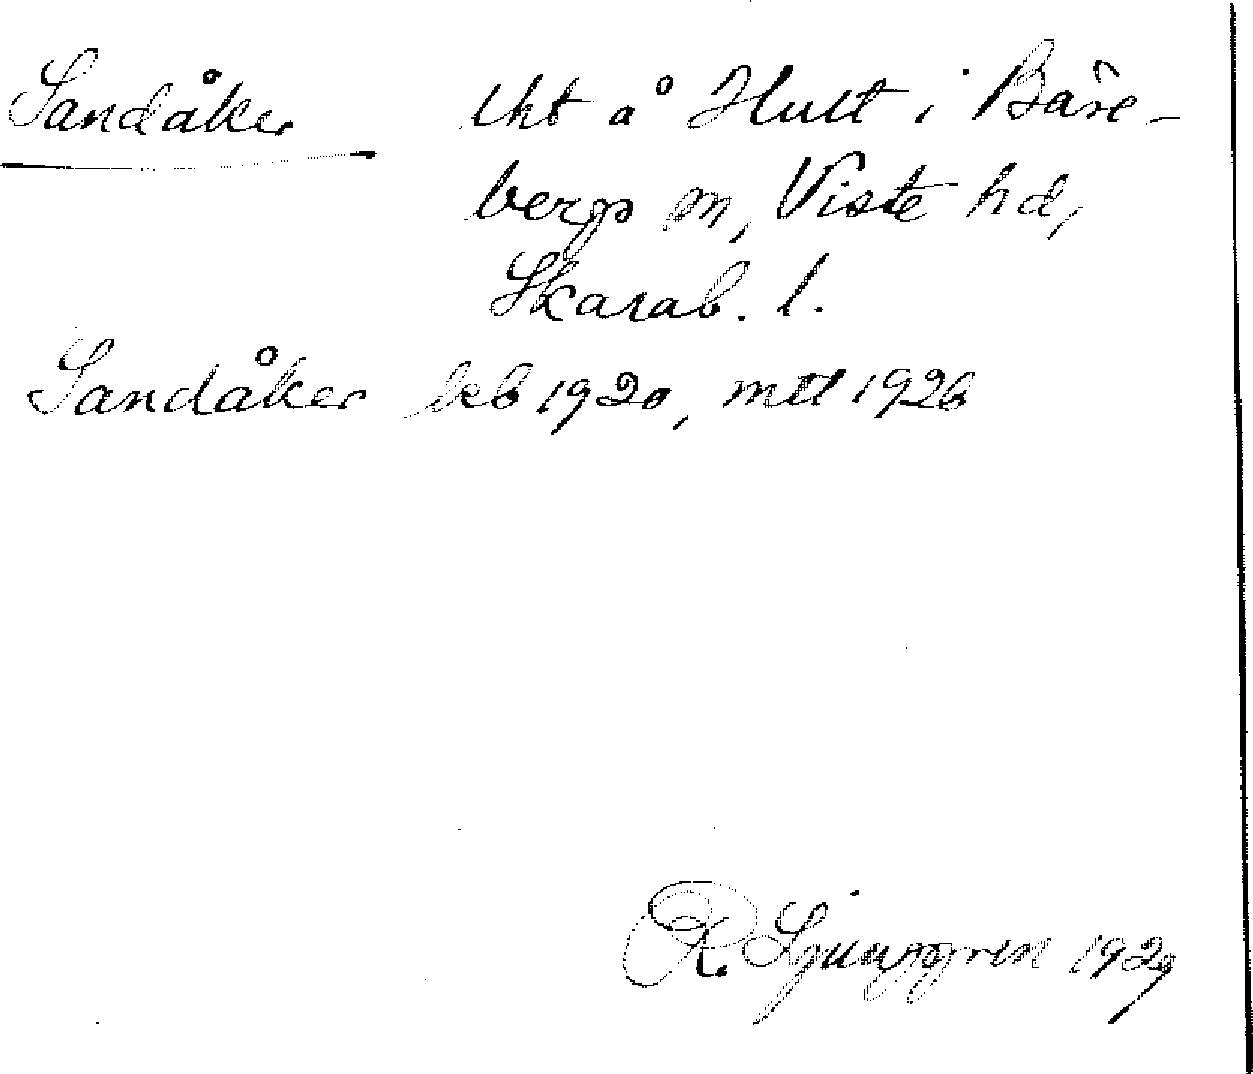 Sandåker lht å Hult i Bäre-
bergs sn, Viste hd,
Skarab. l.
Sandåker kb 1920, mtl 1926
R. Ljunggren 1929